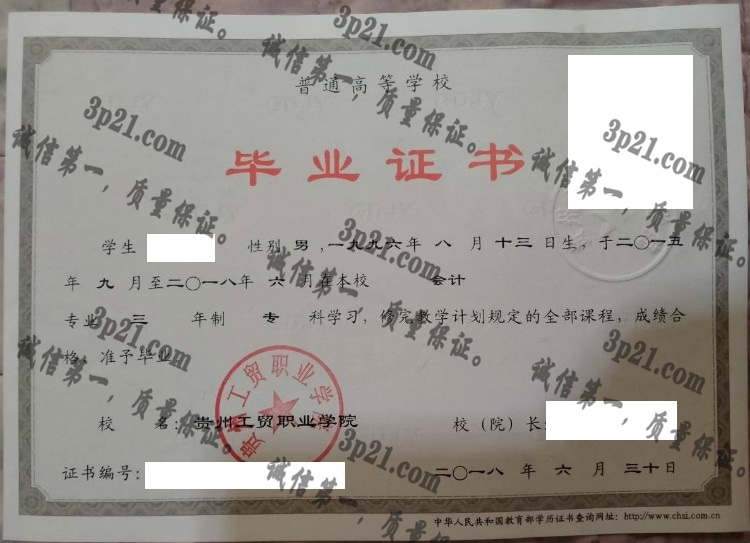 普通高等学校
毕业证书
学生 性别 男 ，一九九六年 八 月 十三 日生，于二〇一五
年 九 月至二〇一八年 六 月在本校 会计
专业 三 年制 专 科学习，修完教学计划规定的全部课程，成绩合
格，准予毕业
校 名：贵州工贸职业学院
校（院）长：
证书编号：
二〇一八 年 六 月 三十日
中华人民共和国教育部学历证书查询网址：http://www.chsi.com.cn
贵州工贸职业学院
3p21.com
诚信第一，质量保证。
3p21.com
诚信第一，质量保证。
3p21.com
诚信第一，质量保证。
3p21.com
诚信第一，质量保证。
3p21.com
诚信第一，质量保证。
3p21.com
诚信第一，质量保证。
3p21.com
诚信第一，质量保证。
3p21.com
诚信第一，质量保证。